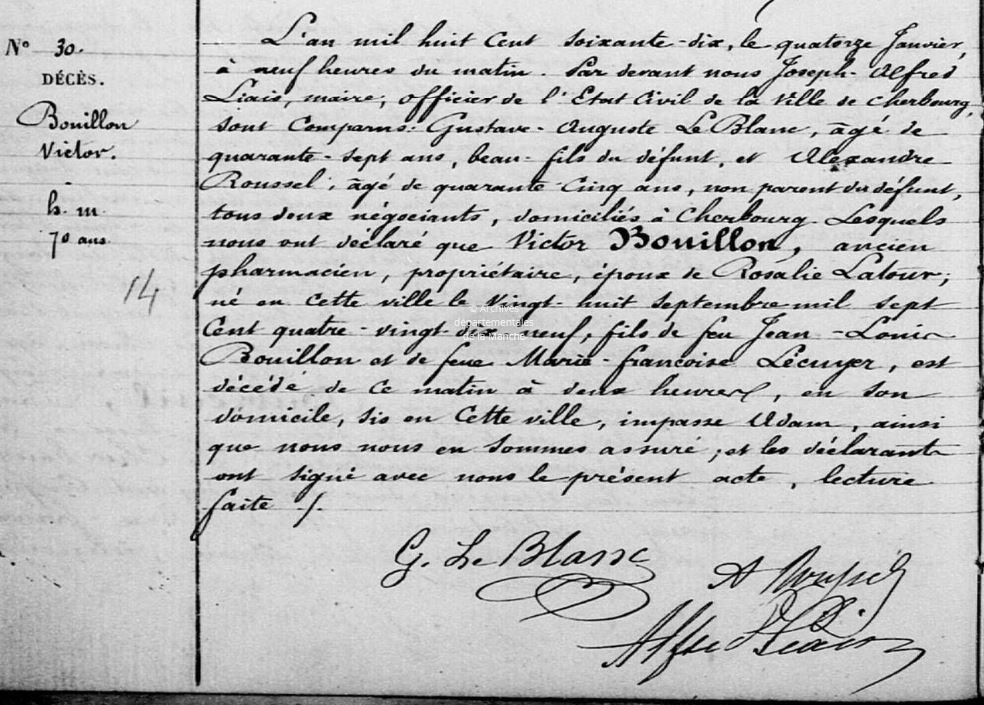 N° 30.
DÉCÈS.
Bouillon
Victor.
h. m.
70 ans
14
L'an mil huit Cent soixante-dix, le quatorze Janvier,
à neuf heures du matin. Par devant nous Joseph-Alfred
Liais, maire, officier de l'Etat Civil de la Ville de Cherbourg,
sont Comparus: Gustave-Auguste Le Blanc, âgé de
quarante-sept ans, beau-fils du défunt, et Alexandre
Roussel, âgé de quarante Cinq ans, non parent du défunt,
tous deux négociants, domiciliés à Cherbourg. Lesquels
nous ont déclaré que Victor Bouillon, ancien
pharmacien, propriétaire, époux de Rosalie Latour;
né en Cette ville le Vingt-huit septembre mil sept
Cent quatre-vingt-dix-neuf, fils de feu Jean-Louis
Bouillon et de feue Marie-françoise Lécuyer, est
décédé de Ce matin à deux heures, en son
domicile, sis en Cette ville, impasse Adam, ainsi
que nous nous en sommes assuré; et les déclarants
ont signé avec nous le présent acte, lecture
faite /.
G. Le Blanc
A Roussel
Alfred Liais
© Archives
départementales
de la Manche